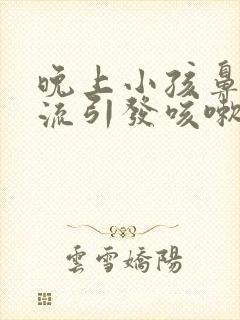 晚上小孩鼻
流引發咳嗽
雲雪嬌陽